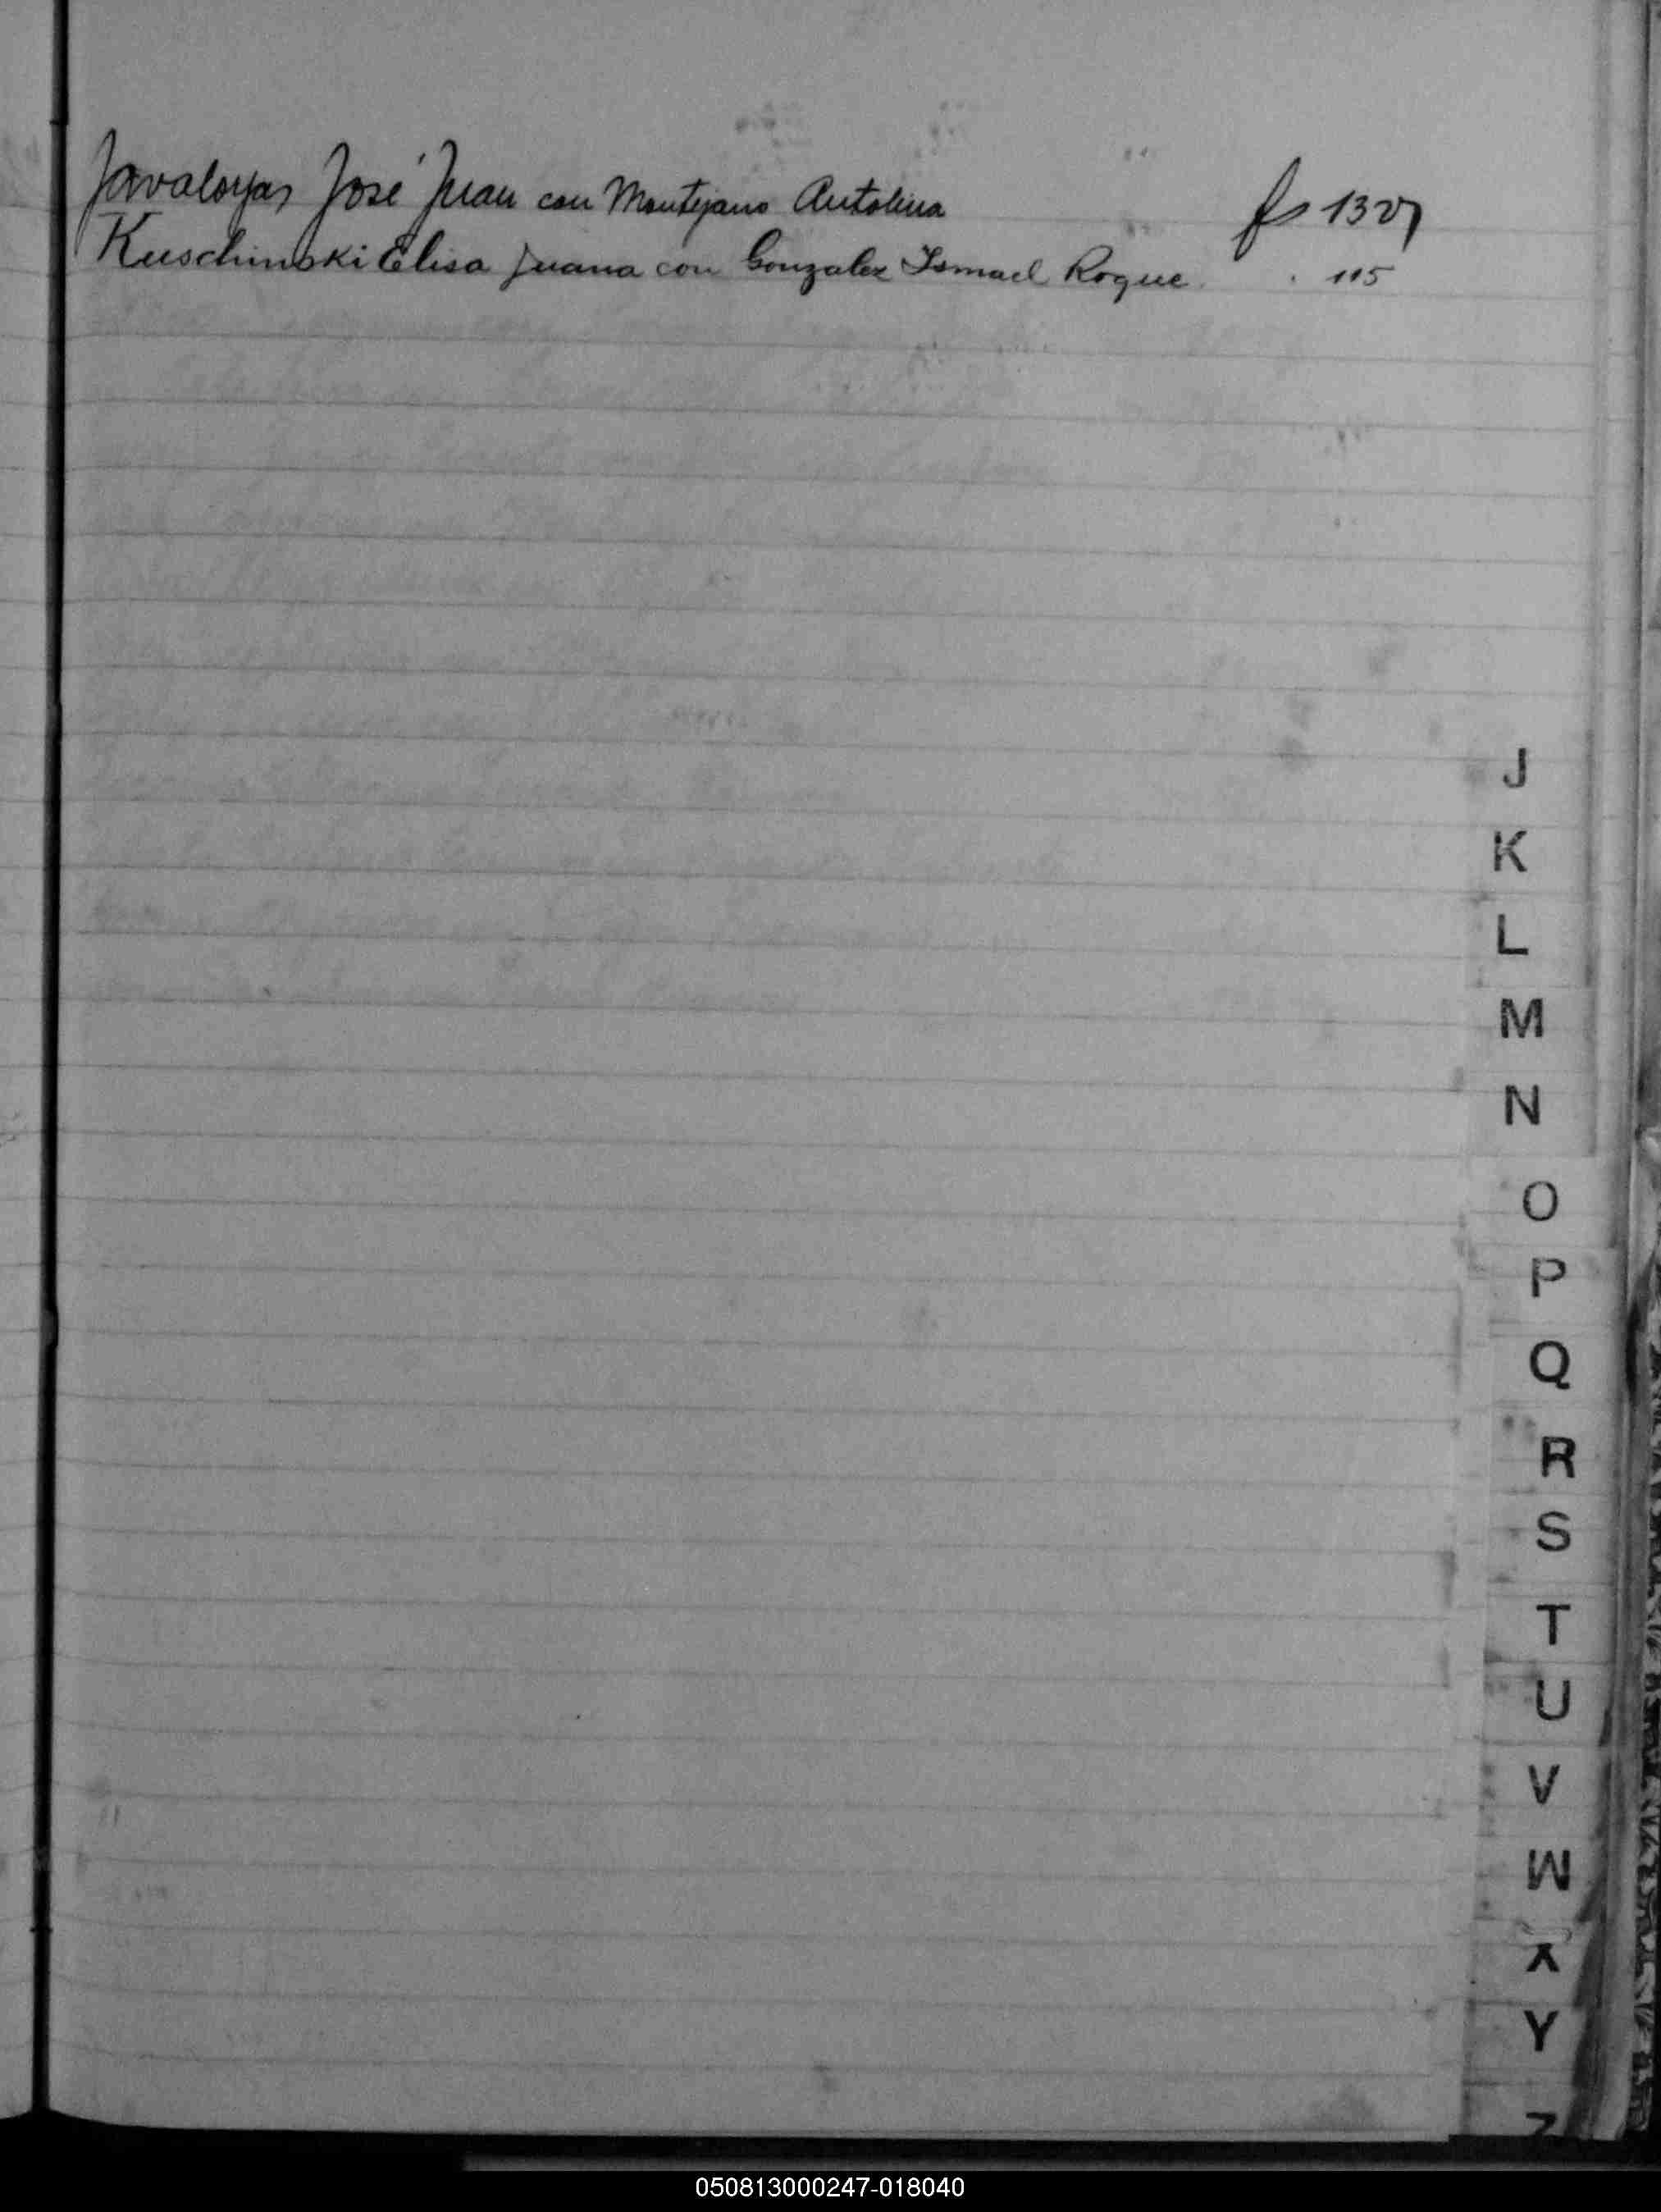 Javaloyas José Juan con Montejano Antolina fs 132
Kuschinski Elisa Juana con Gonzalez Ismael Roque . 115
J
K
L
M
N
O
P
Q
R
S
T
U
V
W
X
Y
Z
050813000247-018040